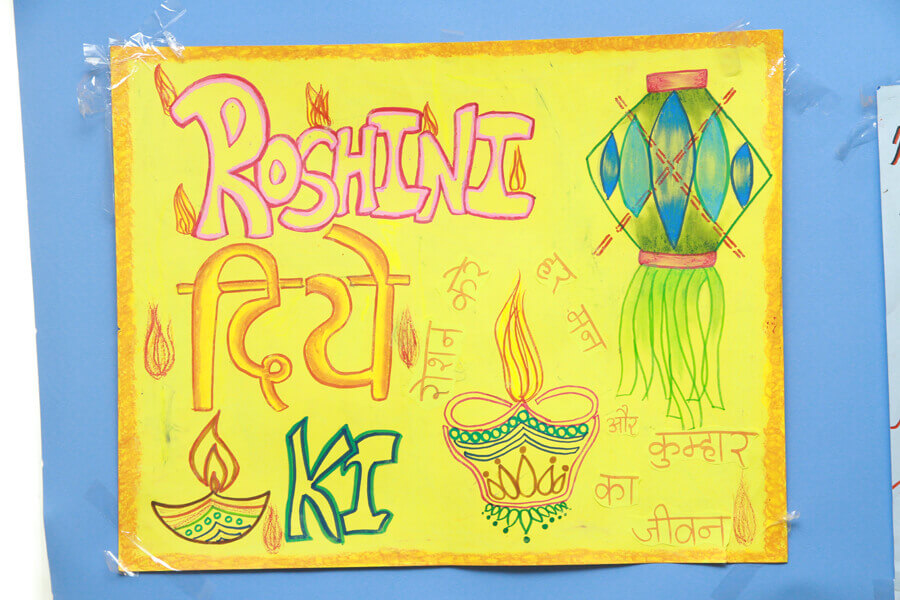 ROSHINI
दिये
KI
रोशन करे
हर मन
और कुम्हार
का
जीवन